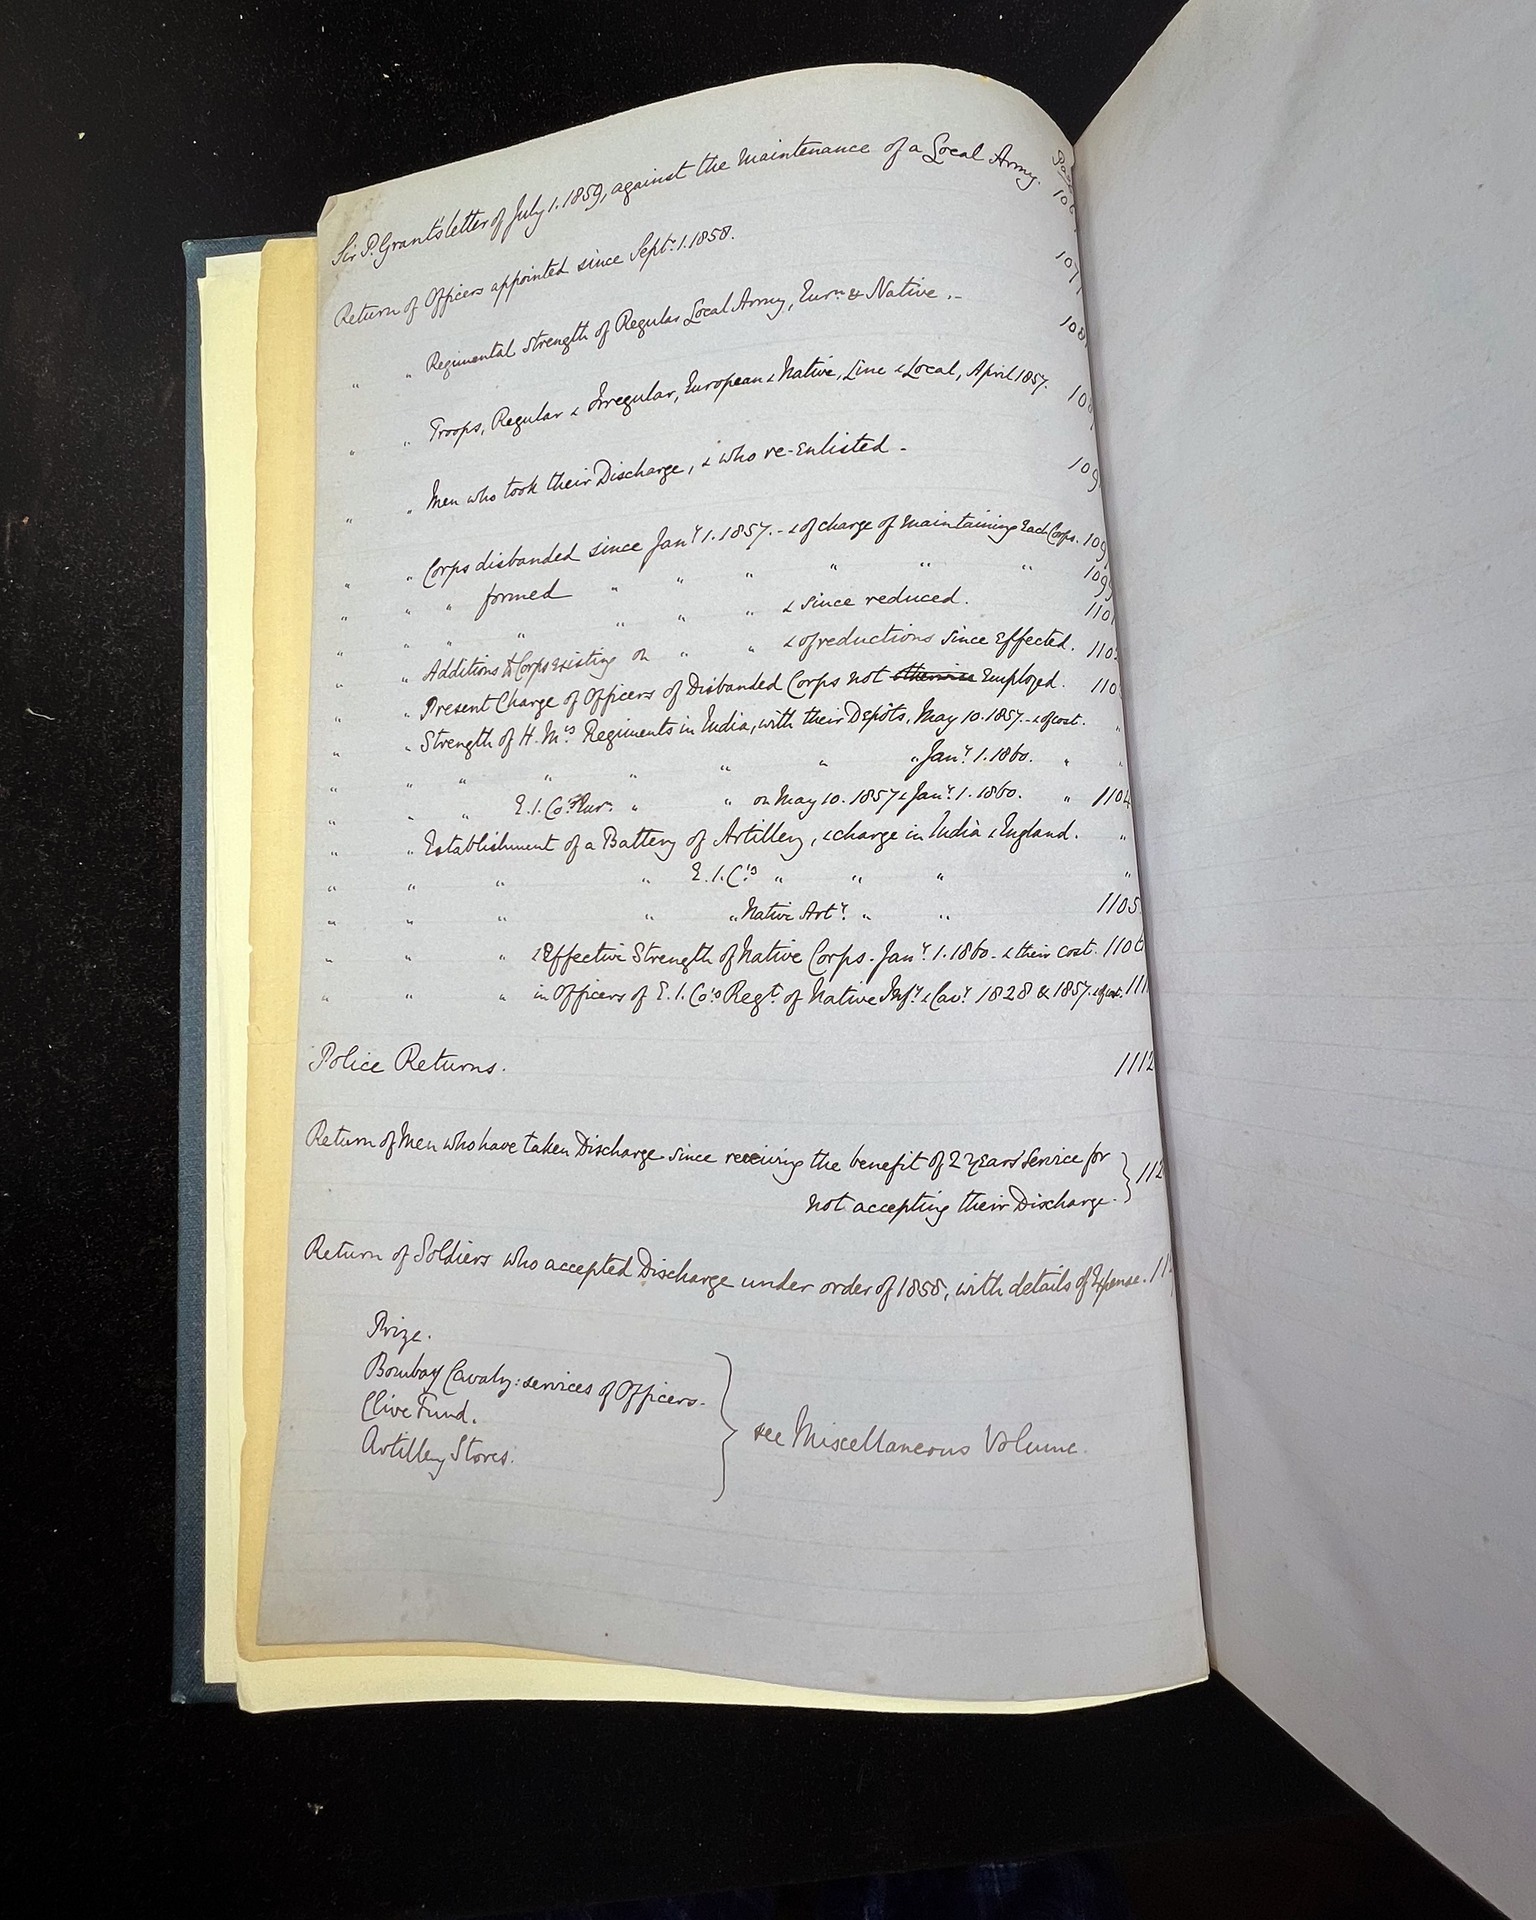 Sir P. Grant's letter of July 1. 1859, against the Maintenance of a Local Army.
Return of Officers appointed since Sept. 1. 1858.
" " Regimental Strength of Regular Local Army, Eurn. & Native. -
" " Troops, Regular & Irregular, European & Native, Line & Local, April 1857.
" " Men who took their Discharge, & who re-enlisted -
" " Corps disbanded since Jany. 1. 1857. - & of charge of Maintaining Each Corps.
" " " formed " " " " " "
" " " " " " " & since reduced.
" " Additions to Corps existing on " " & of reductions since Effected.
" " Present Charge of Officers of Disbanded Corps not otherwise Employed.
" " Strength of H. M's Regiments in India, with their Depôts, May 10. 1857. - & of cost.
" " " " " " " " Jany. 1. 1860. " "
" " " E. I. Co's Eurn. " " on May 10. 1857 & Jany. 1. 1860. " 1104
" " Establishment of a Battery of Artillery, & charge in India & England. "
" " " " E. I. C's " " " "
" " " " " Native Arty. " " 1105
" " " & Effective Strength of Native Corps. Jany. 1. 1860 - & their cost. 1106
" " " in Officers of E. I. Co's Regt. of Native Infy. & Cavy. 1828 & 1857. & of cost.
Police Returns. 1112
Return of Men who have taken Discharge since receiving the benefit of 2 Years' Service for
not accepting their Discharge.
Return of Soldiers who accepted Discharge under order of 1858, with details of Expense.
Prize.
Bombay Cavalry: services of Officers.
Clive Fund.
Artillery Stores.
see Miscellaneous Volume.